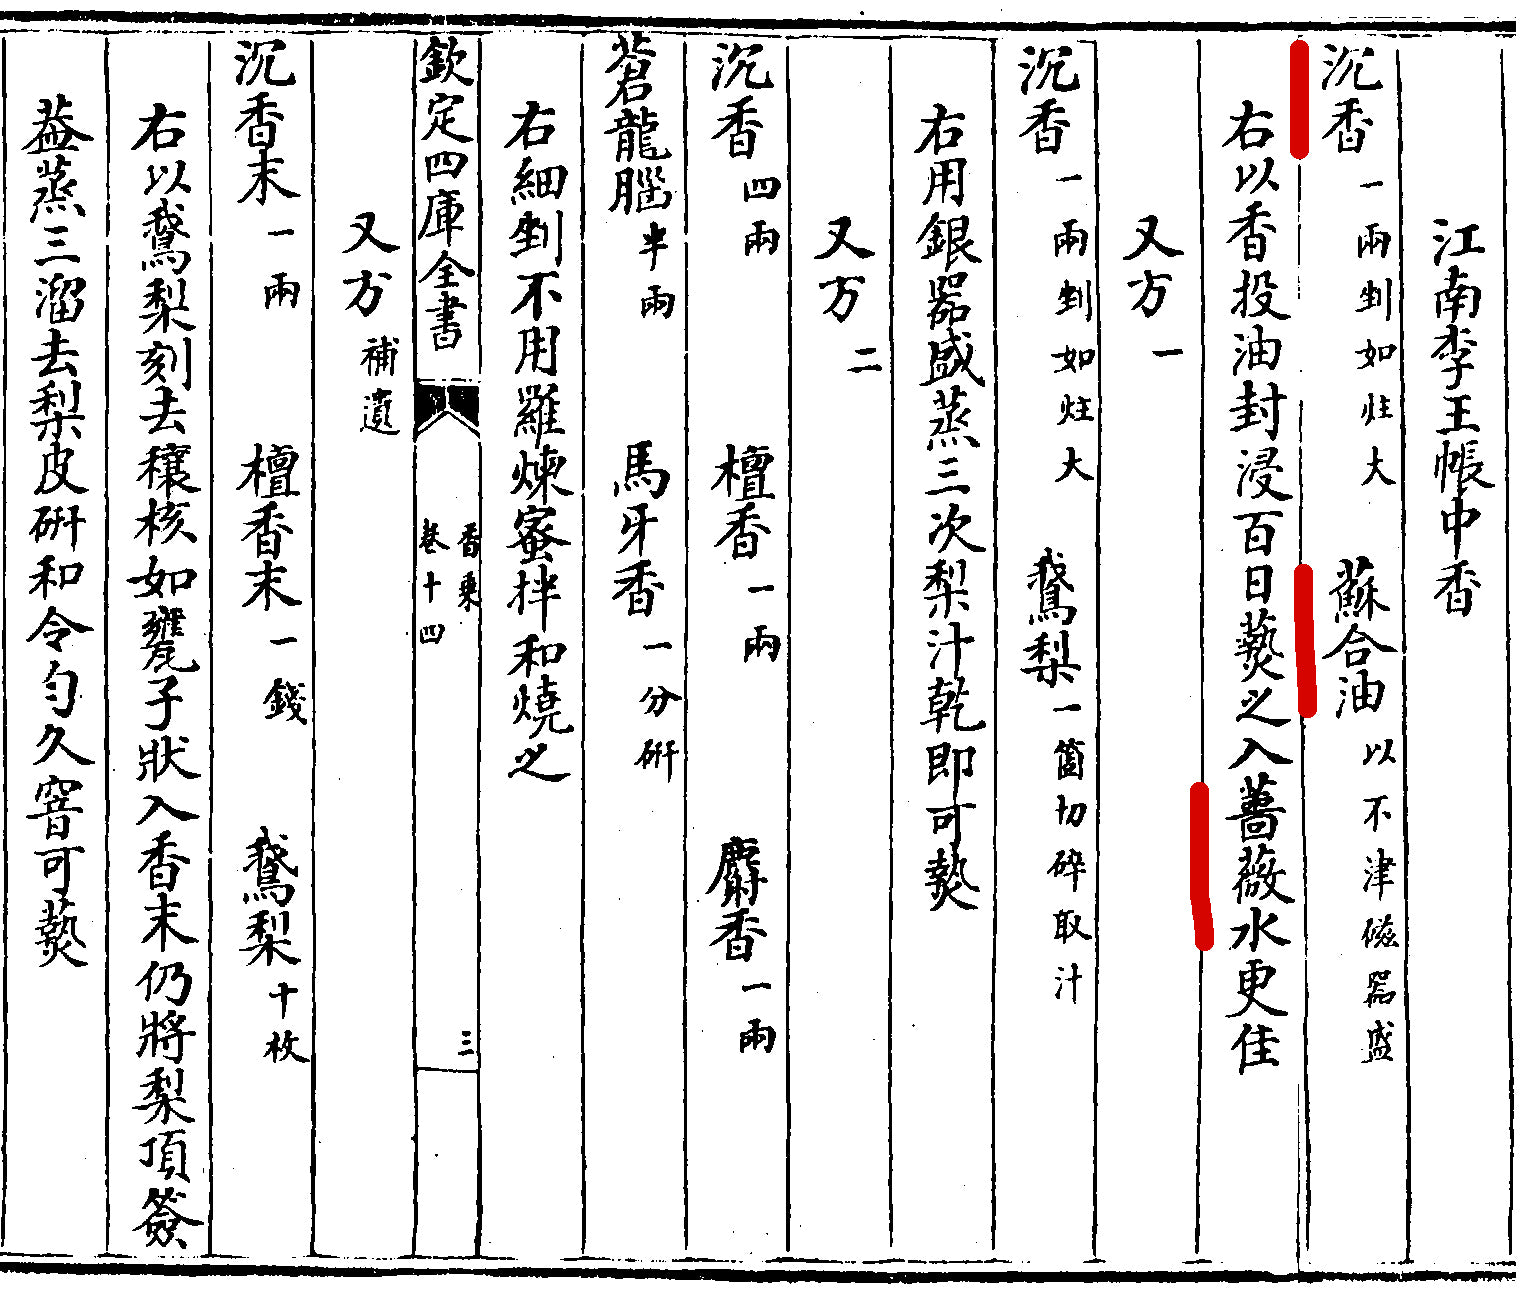 江南李王帳中香
沉香一兩剉如炷大　蘇合油以不津磁器盛
右以香投油封浸百日爇之入薔薇水更佳
又方一
沉香一兩剉如炷大　鵞梨一箇切碎取汁
右用銀器盛蒸三次梨汁乾即可爇
又方二
沉香四兩　檀香一兩　麝香一兩
蒼龍腦半兩　馬牙香一分研
右細剉不用羅煉蜜拌和燒之
欽定四庫全書　香乘卷十四　三
又方補遺
沉香末一兩　檀香末一錢　鵞梨十枚
右以鵞梨刻去穰核如甕子狀入香末仍將梨頂簽
葢蒸三溜去梨皮研和令勻久窨可爇